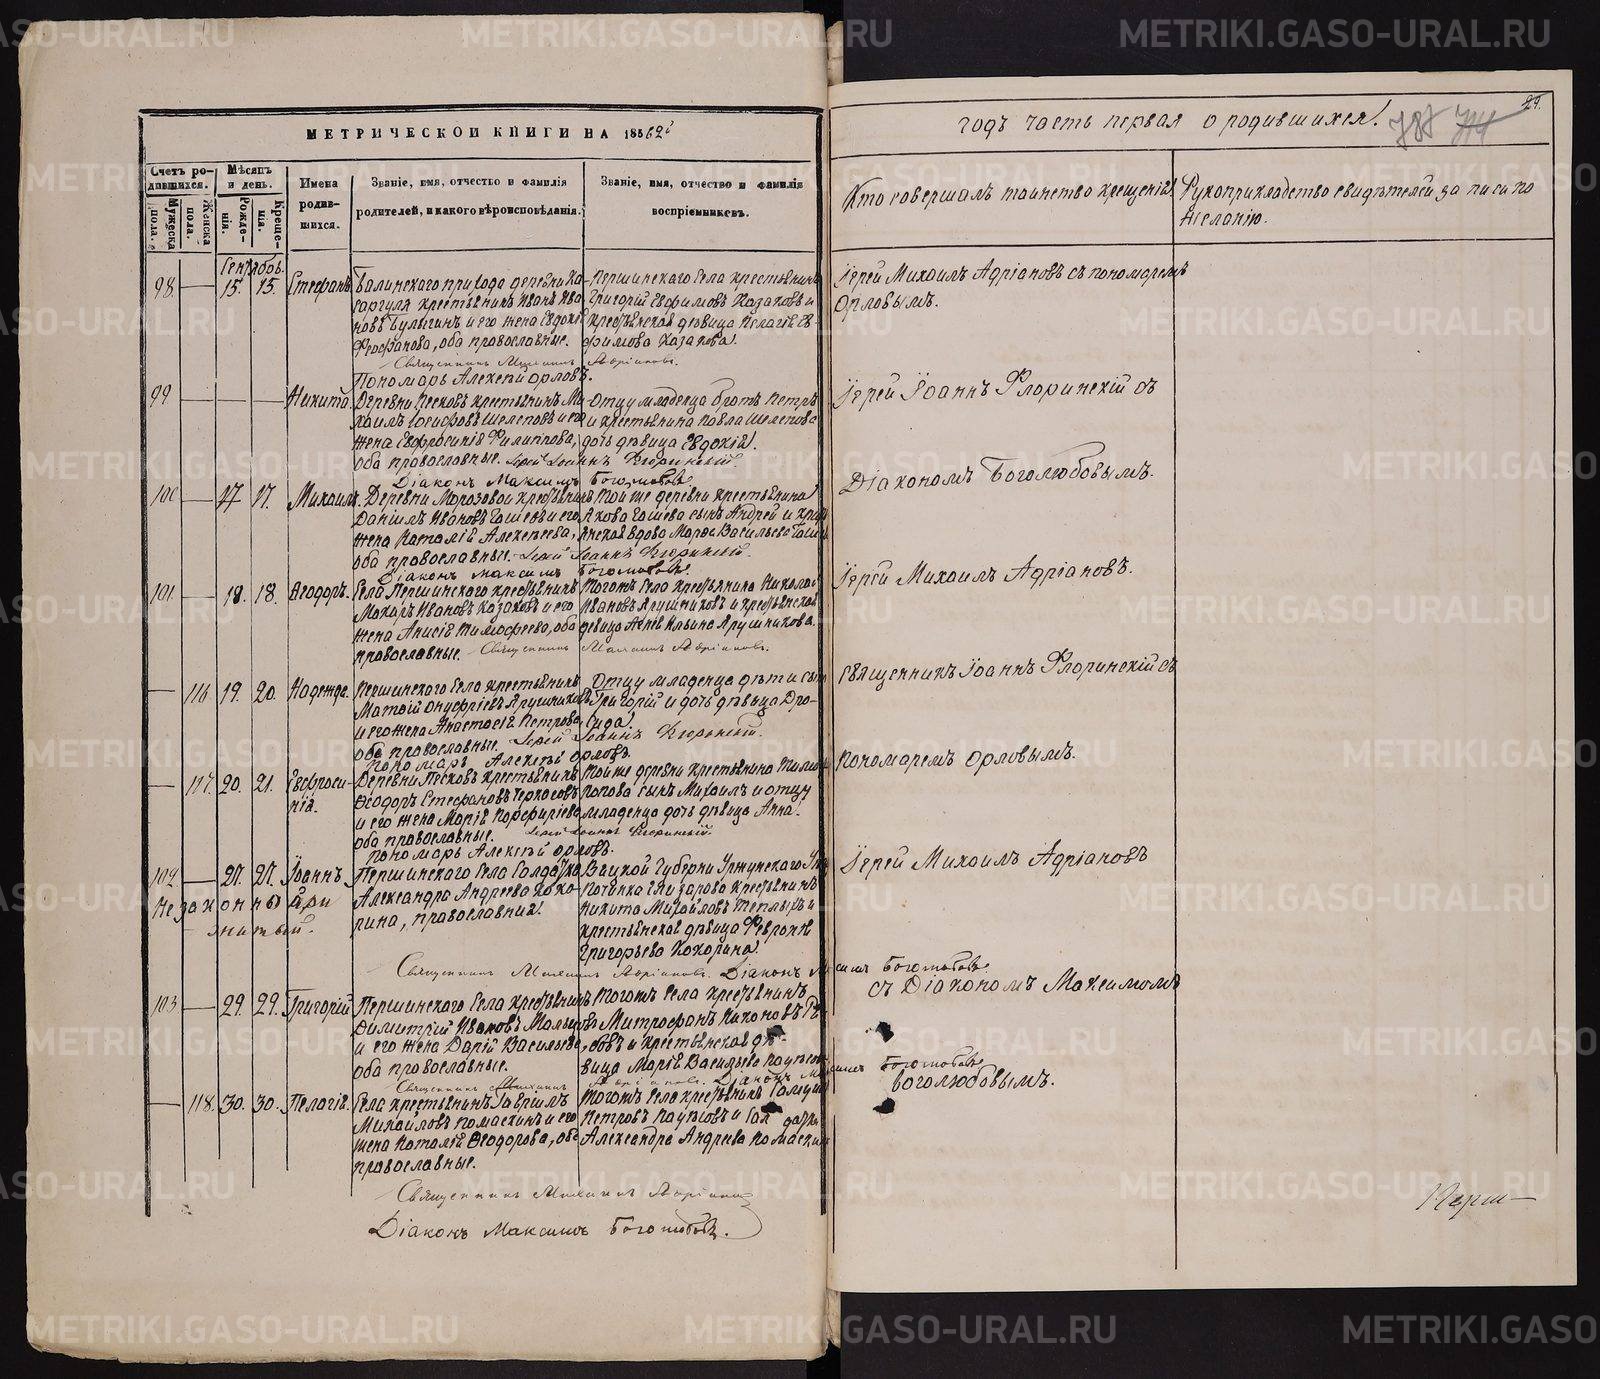 МЕТРИЧЕСКОЙ КНИГИ НА 1862й
годъ часть первая о родившихся.
787
29.
Счетъ ро-
дившихся.
Мужеска
пола.
Женска
пола.
Мѣсяцъ
и день.
Рожде-
нія.
Креще-
нія.
Имена
родив-
шихся.
Званіе, имя, отчество и фамилія
родителей, и какого вѣроисповѣданія.
Званіе, имя, отчество и фамилія
воспріемниковъ.
Кто совершалъ таинство крещенія.
Рукоприкладство свидѣтелей записи по
желанію.
Сентябрь.
98. — 15. 15. Стефанъ.
крестьянинъ Иванъ Ива-
новъ Булыгинъ и его жена Евдокія
Феофанова, оба православные.
Першинскаго села крестьянинъ
Григорій Евфимовъ Казаковъ и
крестьянская дѣвица Пелагія Ев-
фимова Казакова.
Священникъ Михаилъ Адріановъ.
Пономарь Алексѣй Орловъ.
Іерей Михаилъ Адріановъ съ пономаремъ
Орловымъ.
99 — — — Никита.
Деревни Песковъ крестьянинъ Ми-
хаилъ Іосифовъ Шелеповъ и его
жена Евфросинія Филиппова,
оба православные.
Отцу младенца братъ Петръ
и крестьянина Павла Шелепова
дочь дѣвица Евдокія.
Іерей Іоаннъ Флоринскій.
Діаконъ Максимъ Боголюбовъ
Іерей Іоаннъ Флоринскій съ
Діакономъ Боголюбовымъ.
100 — 17 17. Михаилъ.
Деревни Морозовой крестьянинъ
Даніилъ Ивановъ Гашевъ и его
жена Наталія Алексеева,
оба православные.
Той же деревни крестьянина
Якова Гашева сынъ Андрей и
вдова Марфа Васильева
Іерей Іоаннъ Флоринскій.
Діаконъ Максимъ Боголюбовъ.
101 — 18. 18. Ѳеодоръ.
Села Першинскаго крестьянинъ
Макаръ Ивановъ Казаковъ и его
жена Анисія Тимофеева, оба
православные.
Тогожъ села крестьянина Николай
Ивановъ Ярушниковъ и крестьянская
девица Агнія Ильина Ярушникова.
Священникъ Михаилъ Адріановъ.
Іерей Михаилъ Адріановъ.
— 116 19. 20. Надежда.
Першинскаго села крестьянинъ
Матвій Онуфріевъ Ярушниковъ
и его жена Анастасія Петрова,
оба православные.
Отцу младенца дѣти сынъ
Григорій и дочь дѣвица Дро-
сида.
Іерей Іоаннъ Флоринскій.
Пономарь Алексѣй Орловъ.
Священникъ Іоаннъ Флоринскій съ
Пономаремъ Орловымъ.
— 117. 20. 21. Евфроси-
нія.
Деревни Песковъ крестьянинъ
Ѳеодоръ Стефановъ Черкасовъ
и его жена Марія Порфиріева
оба православные.
Той же деревни крестьянина
Попова сынъ Михаилъ и отцу
младенца дочь дѣвица Анна.
Іерей Іоаннъ Флоринскій.
Пономарь Алексѣй Орловъ.
102 — 27. 27. Іоаннъ.
незаконнопри
житый.
Першинскаго села солдатка
Александра Андреева Коко-
рина, православная.
Вяцкой губерни Уржумского
крестьянинъ
Никита Михайловъ Теплыхъ и
крестьянская дѣвица Февронія
Григорьева Кокорина.
Священникъ Михаилъ Адріановъ. Діаконъ Максимъ Боголюбовъ
Іерей Михаилъ Адріановъ
съ Діакономъ Максимомъ
Боголюбовымъ.
103 — 29. 29. Григорій
Першинскаго села крестьянинъ
Димитрій Ивановъ Мальцовъ
и его жена Дарія Васильева,
оба православные.
Тогожъ села крестьянинъ
Митрофанъ Никоновъ
и крестьянская дѣ-
вица Марія Васильева
Священникъ Михаилъ Адріановъ. Діаконъ Максимъ Боголюбовъ
— 118. 30. 30. Пелагія.
Села крестьянинъ Гавріилъ
Михайловъ Помаскинъ и его
жена Наталія Ѳеодорова, оба
православные.
Тогожъ села крестьянинъ
Петровъ Паузовъ и
Александра Андреева Помаскина
Священникъ Михаилъ Адріановъ
Діаконъ Максимъ Боголюбовъ.
Перш—
METRIKI.GASO-URAL.RU